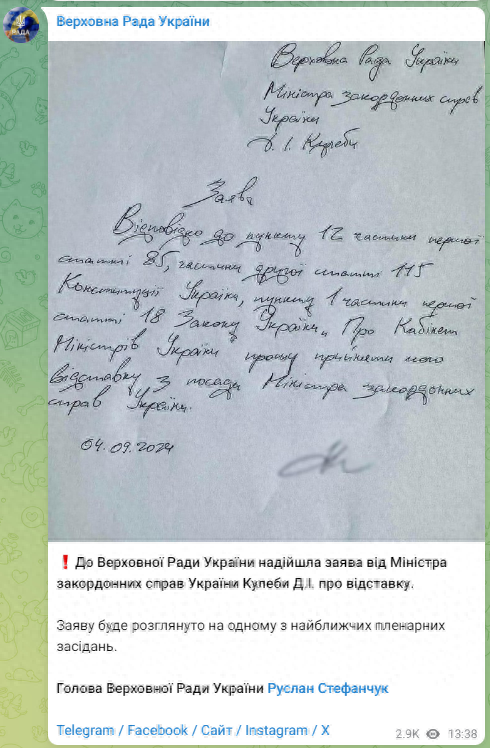 РАДА
Верховна Рада України
Верховна Рада України
Міністра закордонних справ
України
Д. І. Кулеби
Заява
Відповідно до пункту 12 частини першої
статті 85, частини другої статті 115
Конституції України, пункту 1 частини першої
статті 18 Закону України „Про Кабінет
Міністрів України прошу прийняти мою
відставку з посади Міністра закордонних
справ України.
04.09.2024
❗ До Верховної Ради України надійшла заява від Міністра
закордонних справ України Кулеби Д.І. про відставку.
Заяву буде розглянуто на одному з найближчих пленарних
засідань.
Голова Верховної Ради України Руслан Стефанчук
Telegram / Facebook / Сайт / Instagram / X
2.9K 13:38